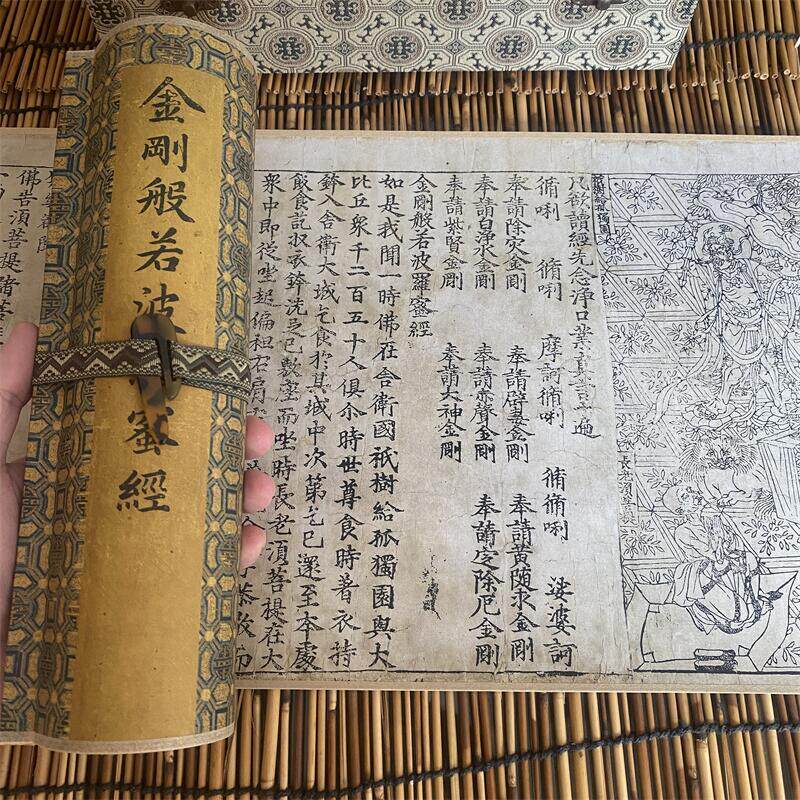 金剛般若波蜜經
祇樹給孤獨園
凡欲讀經先念淨口業真言一遍
脩唎 脩唎 摩訶脩唎 脩脩唎 娑婆訶
奉請除灾金剛 奉請辟毒金剛 奉請黄随求金剛
奉請白淨水金剛 奉請赤聲金剛 奉請定除厄金剛
奉請紫賢金剛 奉請大神金剛
金剛般若波羅蜜經
如是我聞一時佛在舍衛國祇樹給孤獨園與大
比丘衆千二百五十人俱尒時世尊食時著衣持
鉢入舍衛大城乞食於其城中次第乞已還至本處
飯食訖收衣鉢洗足已敷座而坐時長老須菩提在大
衆中即從坐起偏袒右肩 恭敬而
佛告須菩提諸菩